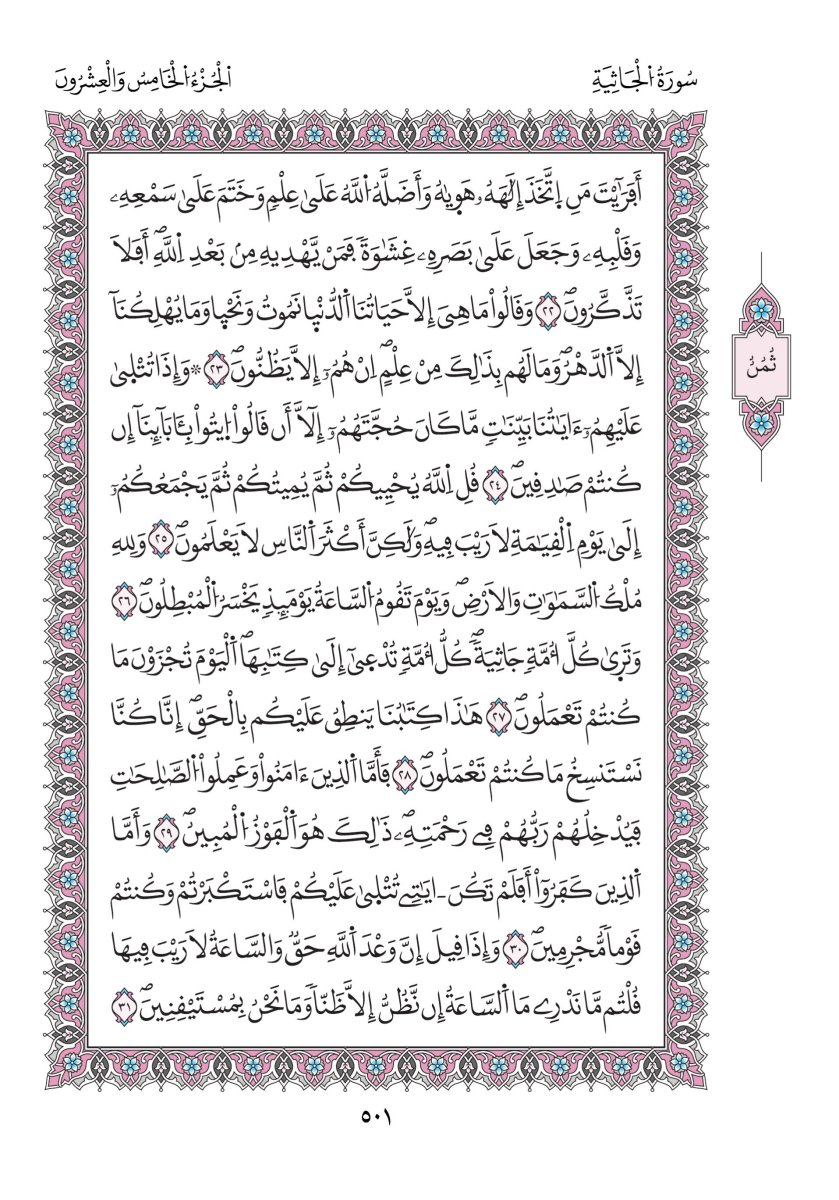 سُورَةُ اُ۬لْجَاثِيَةِ
اَلْجُزْءُ اُ۬لْخَامِسُ وَالْعِشْرُونَ
أَفَرَٰٓيْتَ مَنِ اِ۪تَّخَذَ إِلَٰهَهُۥ هَوٜيٰهُ وَأَضَلَّهُ اُ۬للَّهُ عَلَيٰ عِلْمٖ وَخَتَمَ عَلَيٰ سَمْعِهِۦ
وَقَلْبِهِۦ وَجَعَلَ عَلَيٰ بَصَرِهِۦ غِشَٰوَةٗ فَمَنْ يَّهْدِيهِ مِنۢ بَعْدِ اِ۬للَّهِۖ أَفَلَا
تَذَّكَّرُونَۖ ٢٢ وَقَالُواْ مَا هِيَ إِلَّا حَيَاتُنَا اَ۬لدُّنْيٜا نَمُوتُ وَنَحْيٜا وَمَا يُهْلِكُنَآ
إِلَّا اَ۬لدَّهْرُۖ وَمَا لَهُم بِذَٰلِكَ مِنْ عِلْمٍۖ اِنْ هُمُۥٓ إِلَّا يَظُنُّونَۖ ٢٣ *وَإِذَا تُتْلٜيٰ
عَلَيْهِمُۥٓ ءَايَٰتُنَا بَيِّنَٰتٖ مَّا كَانَ حُجَّتَهُمُۥٓ إِلَّآ أَن قَالُواْ اُ۪يتُواْ بِـَٔابَآئِنَآ إِن
كُنتُمْ صَٰدِقِينَۖ ٢٤ قُلِ اِ۬للَّهُ يُحْيِيكُمْ ثُمَّ يُمِيتُكُمْ ثُمَّ يَجْمَعُكُمُۥٓ
إِلَيٰ يَوْمِ اِ۬لْقِيَٰمَةِ لَا رَيْبَ فِيهِۖ وَلَٰكِنَّ أَكْثَرَ اَ۬لنَّاسِ لَا يَعْلَمُونَۖ ٢٥ وَلِلهِ
مُلْكُ اُ۬لسَّمَٰوَٰتِ وَالَارْضِۖ وَيَوْمَ تَقُومُ اُ۬لسَّاعَةُ يَوْمَئِذٖ يَخْسَرُ اُ۬لْمُبْطِلُونَۖ ٢٦
وَتَرٜيٰ كُلَّ أُمَّةٖ جَاثِيَةٗۖ كُلُّ أُمَّةٖ تُدْعٜيٰٓ إِلَيٰ كِتَٰبِهَاۖ اَ۬لْيَوْمَ تُجْزَوْنَ مَا
كُنتُمْ تَعْمَلُونَۖ ٢٧ هَٰذَا كِتَٰبُنَا يَنطِقُ عَلَيْكُم بِالْحَقِّۖ إِنَّا كُنَّا
نَسْتَنسِخُ مَا كُنتُمْ تَعْمَلُونَۖ ٢٨ فَأَمَّا اَ۬لذِينَ ءَامَنُواْ وَعَمِلُواْ اُ۬لصَّٰلِحَٰتِ
فَيُدْخِلُهُمْ رَبُّهُمْ فِے رَحْمَتِهِۦۖ ذَٰلِكَ هُوَ اَ۬لْفَوْزُ اُ۬لْمُبِينُۖ ٢٩ وَأَمَّا
اَ۬لذِينَ كَفَرُوٓاْ أَفَلَمْ تَكُنَ اٰيَٰتِے تُتْلٜيٰ عَلَيْكُمْ فَاسْتَكْبَرْتُمْ وَكُنتُمْ
قَوْماٗ مُّجْرِمِينَۖ ٣٠ وَإِذَا قِيلَ إِنَّ وَعْدَ اَ۬للَّهِ حَقّٞ وَالسَّاعَةُ لَا رَيْبَ فِيهَا
قُلْتُم مَّا نَدْرِے مَا اَ۬لسَّاعَةُ إِن نَّظُنُّ إِلَّا ظَنّاٗ وَمَا نَحْنُ بِمُسْتَيْقِنِينَۖ ٣١
ثُمُنُ
٥٠١